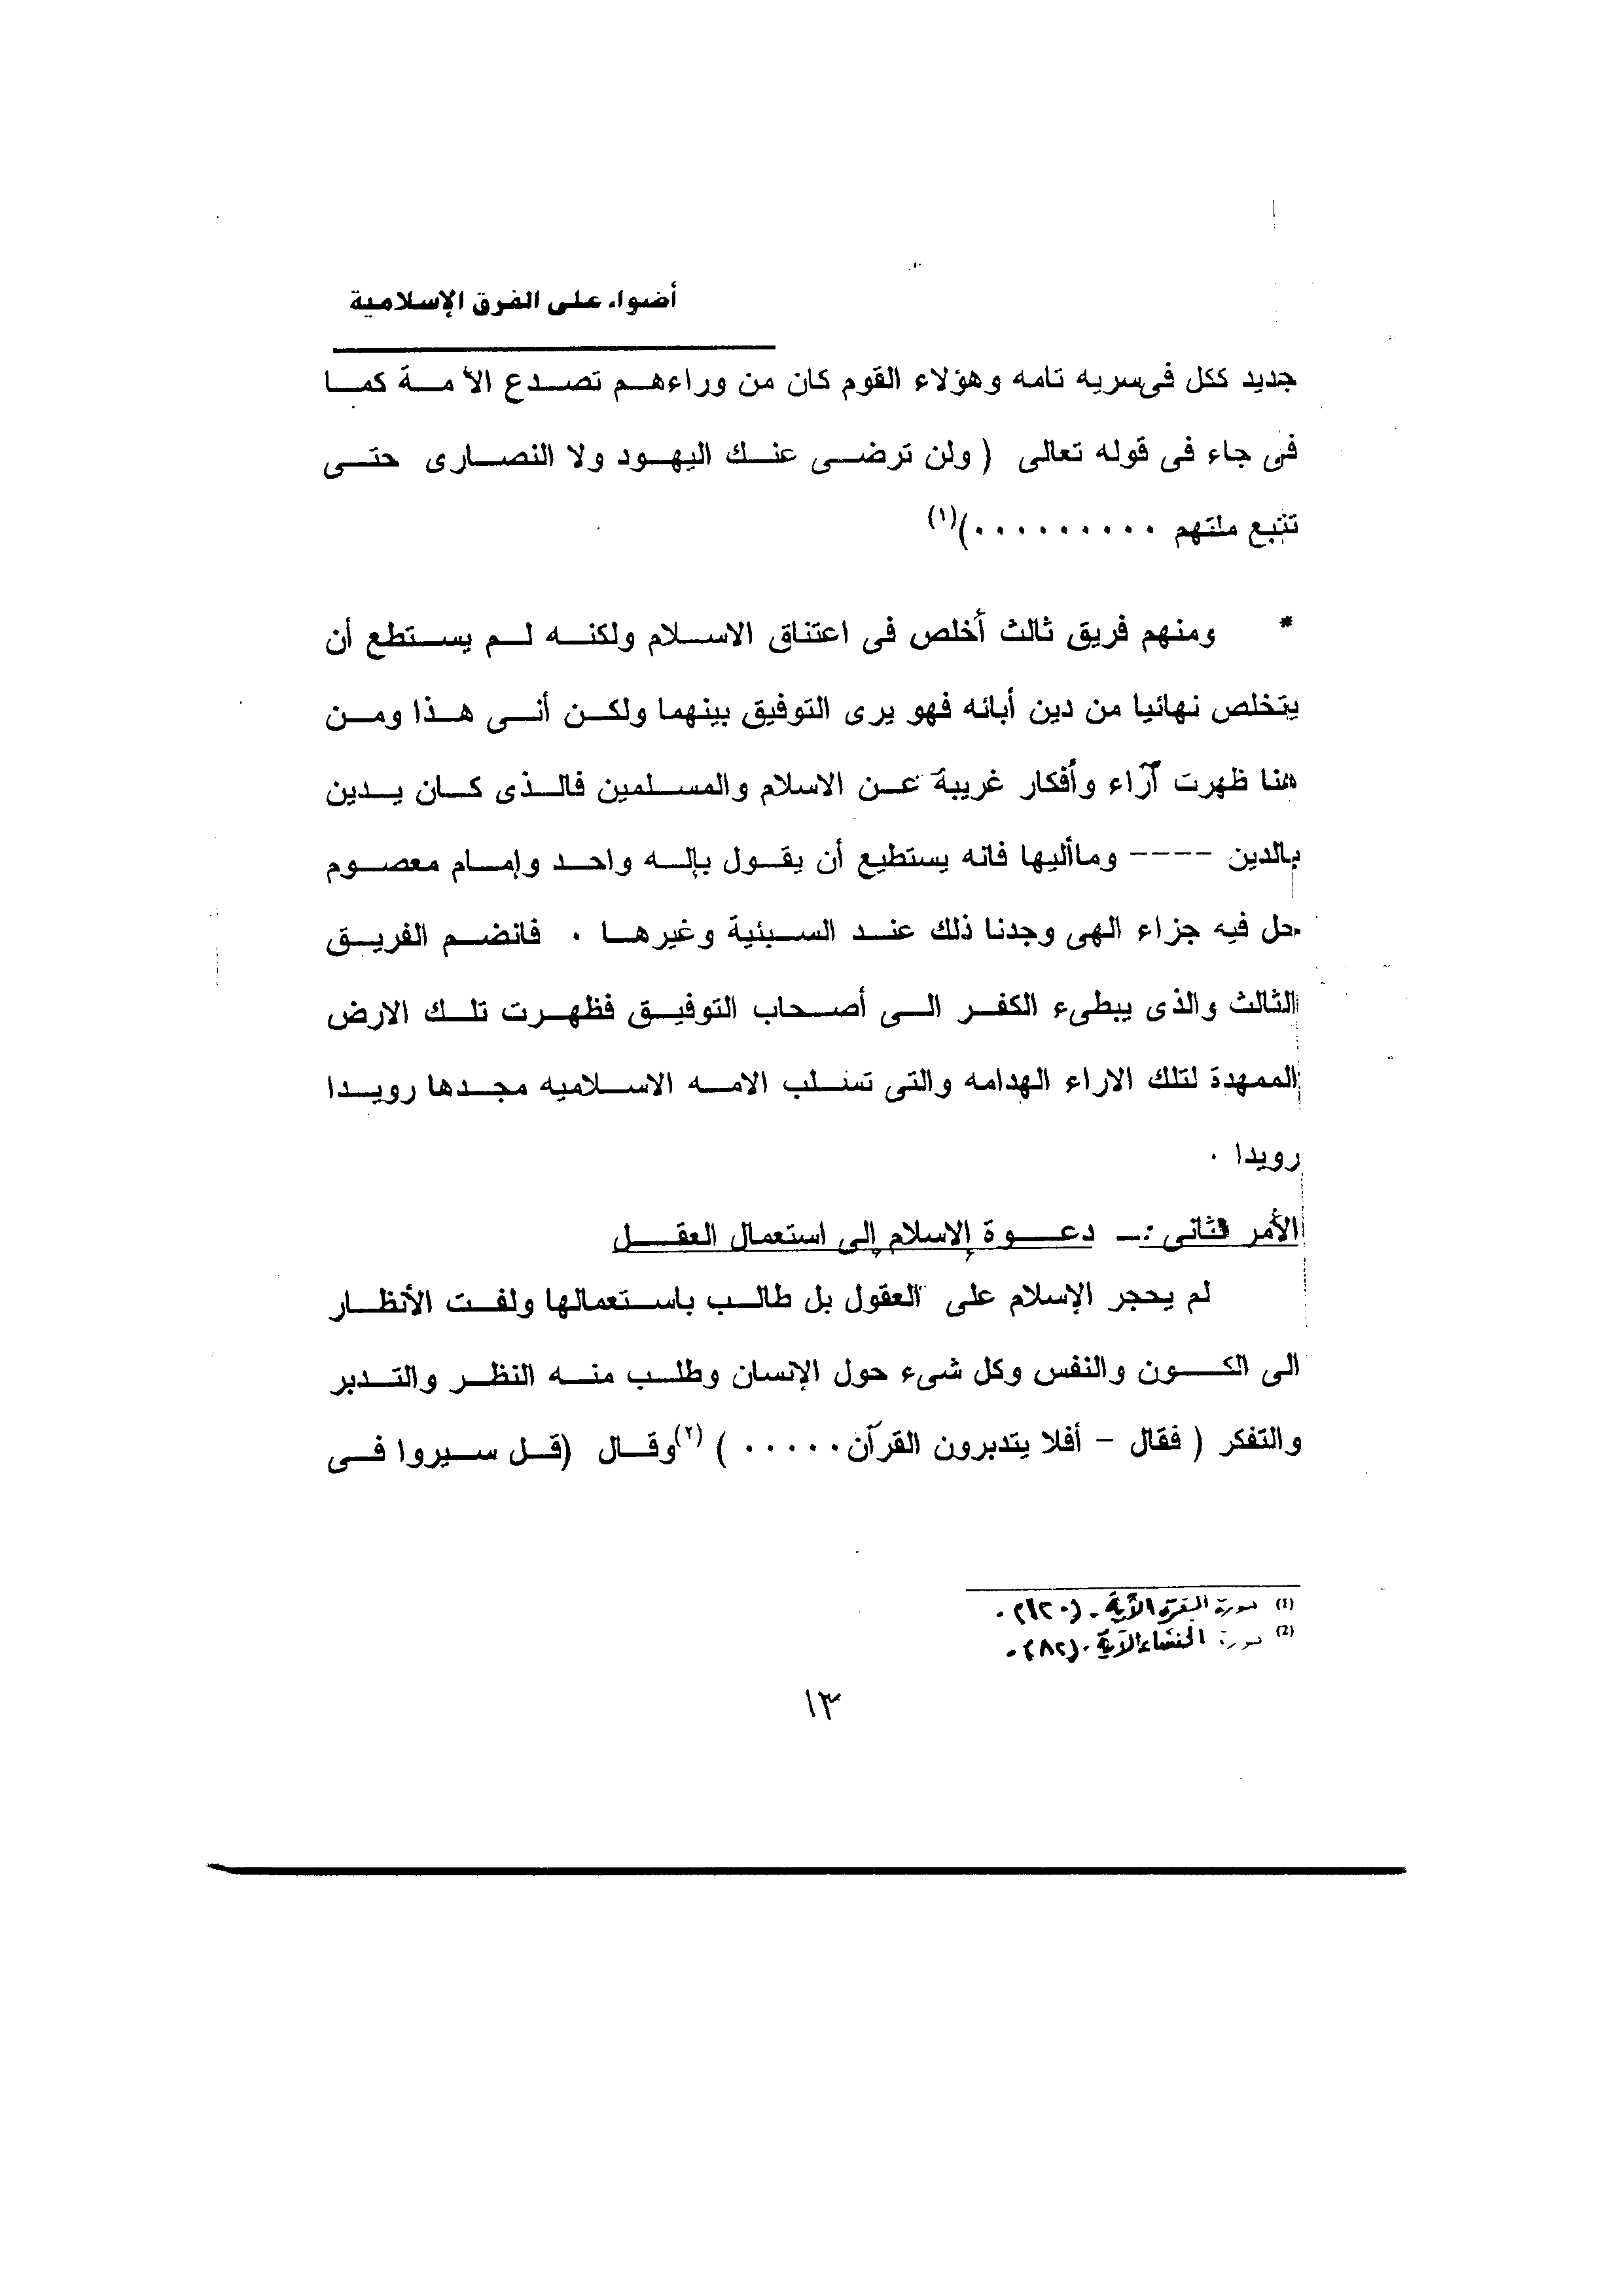 أضواء على الفرق الإسلامية
جديد ككل فى سريه تامه وهؤلاء القوم كان من وراءهم تصدع الأمة كما
فى جاء فى قوله تعالى ( ولن ترضى عنك اليهود ولا النصارى حتى
تتبع ملتهم ٠٠٠٠٠٠٠٠٠)(١)
* ومنهم فريق ثالث أخلص فى اعتناق الاسلام ولكنه لم يستطع أن
يتخلص نهائيا من دين أبائه فهو يرى التوفيق بينهما ولكن أنى هذا ومن
هنا ظهرت آراء وأفكار غريبة عن الاسلام والمسلمين فالذى كان يدين
بالدين ---- وماأليها فانه يستطيع أن يقول بإله واحد وإمام معصوم
حل فيه جزاء الهى وجدنا ذلك عند السبئية وغيرها ٠ فانضم الفريق
الثالث والذى يبطىء الكفر الى أصحاب التوفيق فظهرت تلك الارض
الممهدة لتلك الاراء الهدامه والتى تسلب الامه الاسلاميه مجدها رويدا
رويدا ٠
الأمر الثانى :- دعوة الإسلام إلى استعمال العقل
لم يحجر الإسلام على العقول بل طالب باستعمالها ولفت الأنظار
الى الكون والنفس وكل شىء حول الإنسان وطلب منه النظر والتدبر
والتفكر ( فقال - أفلا يتدبرون القرآن٠٠٠٠٠ ) (٢)وقال (قل سيروا فى
(1) سورة البقرة الآية - (١٢٠)٠
(2) سورة النساء الآية - (٨٢)٠
١٣